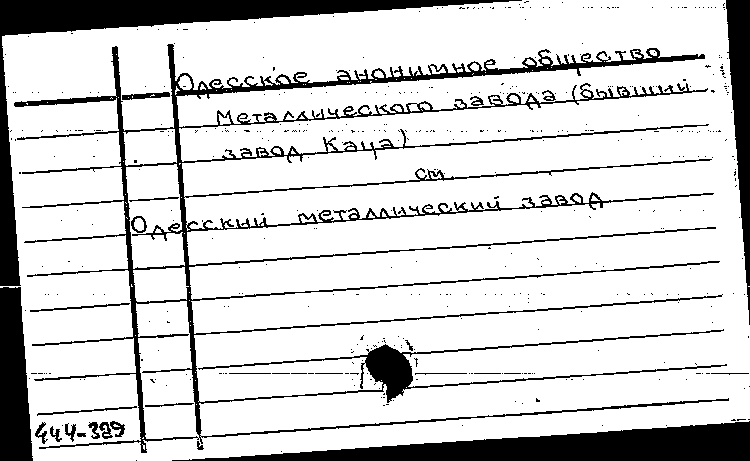 Одесское анонимное общество
металлического завода (бывший
завод Каца)
см.
Одесский металлический завод
444-389